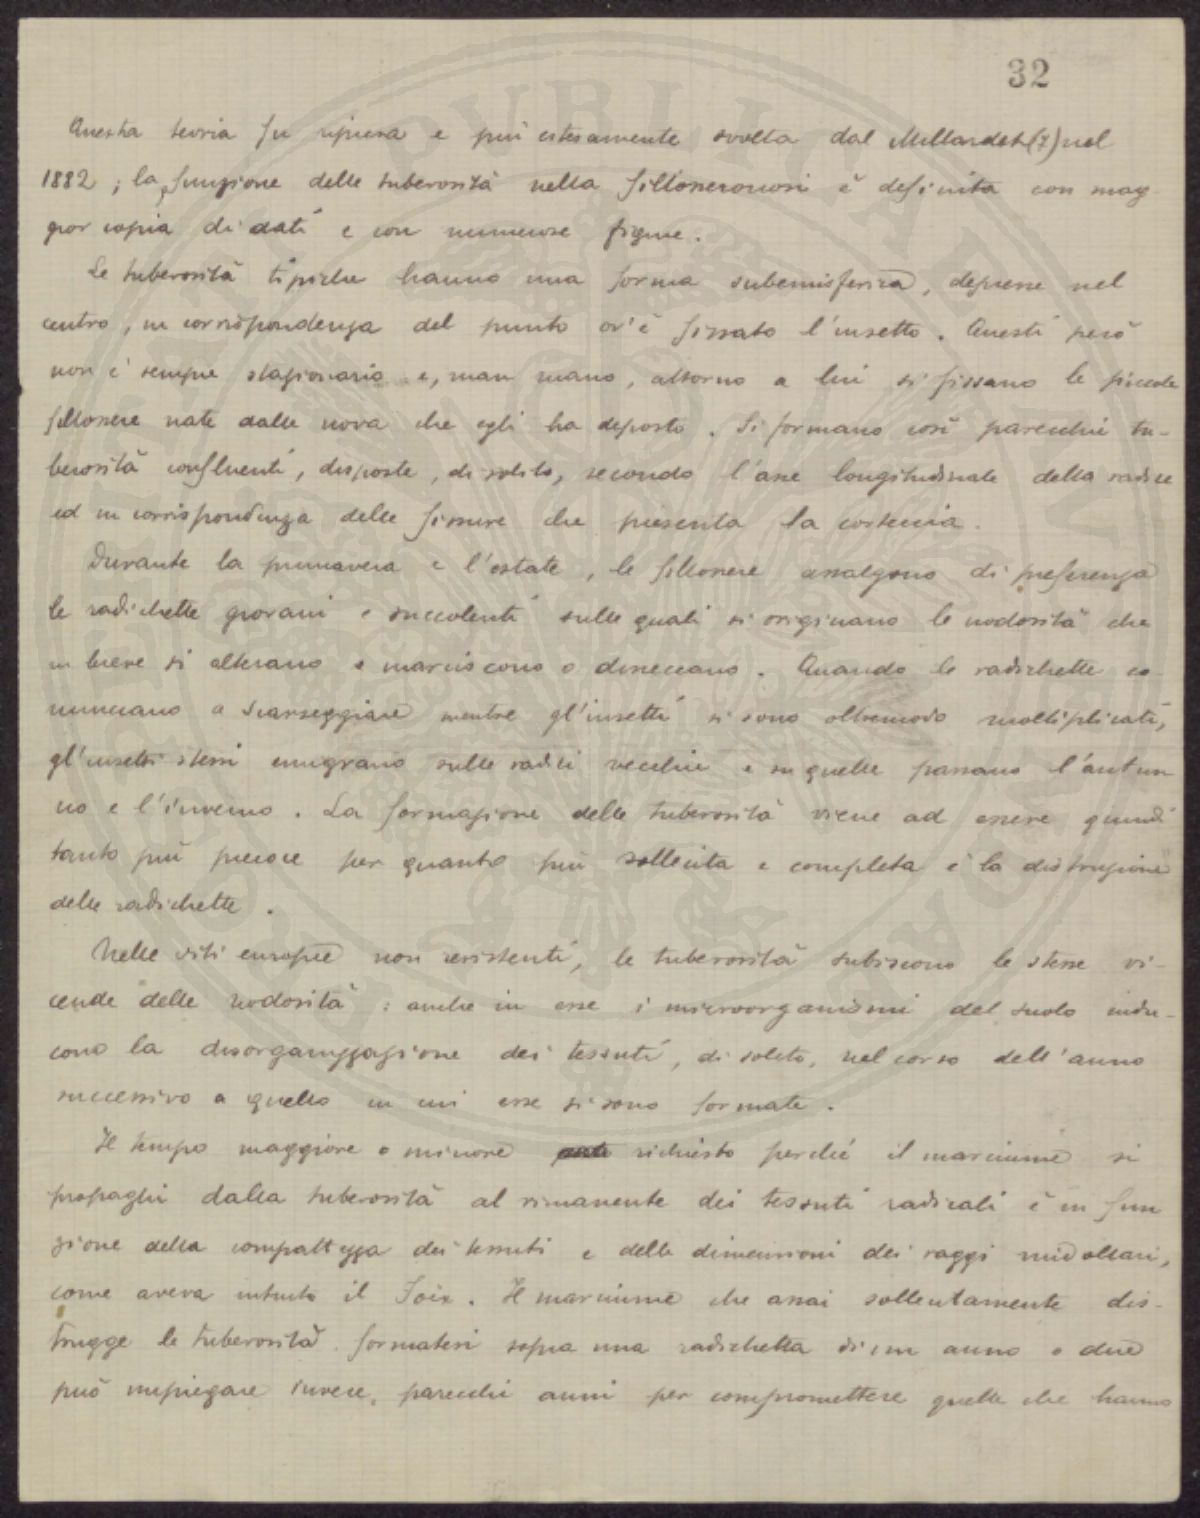 32
Questa teoria fu ripresa e più estesamente svolta dal Millardet (7) nel
1882 ; la funzione delle tuberosità nella fillosseronosi è definita con mag-
gior copia di dati e con numerose figure.
Le tuberosità tipiche hanno una forma subemisferica, depresse nel
centro, in corrispondenza del punto ov'è fissato l'insetto. Questi però
non è sempre stazionario e, man mano, attorno a lui si fissano le piccole
fillossere nate dalle uova che egli ha deposto. Si formano così parecchie tu-
berosità confluenti, disposte, di solito, secondo l'asse longitudinale della radice
ed in corrispondenza delle fessure che presenta la corteccia.
Durante la primavera e l'estate, le fillossere assalgono di preferenza
le radichette giovani e succolenti sulle quali si originano le nodosità che
in breve si alterano e marciscono o disseccano. Quando le radichette co-
minciano a scarseggiare mentre gl'insetti si sono oltremodo moltiplicati,
gl'insetti stessi emigrano sulle radici vecchie e su quelle passano l'autun
no e l'inverno. La formazione delle tuberosità viene ad essere quindi
tanto più precoce per quanto più sollecita e completa è la distruzione
delle radichette.
Nelle viti europee non resistenti, le tuberosità subiscono le stesse vi-
cende delle nodosità : anche in esse i microorganismi del suolo indu-
cono la disorganizzazione dei tessuti, di solito, nel corso dell'anno
successivo a quello in cui esse si sono formate.
Il tempo maggiore o minore richiesto perché il marciume si
propaghi dalla tuberosità al rimanente dei tessuti radicali è in fun
zione della compattezza dei tessuti e delle dimensioni dei raggi midollari,
come aveva intuito il Foëx. Il marciume che assai sollecitamente dis-
trugge le tuberosità formatesi sopra una radichetta di un anno o due
può impiegare invece, parecchi anni per compromettere quelle che hanno